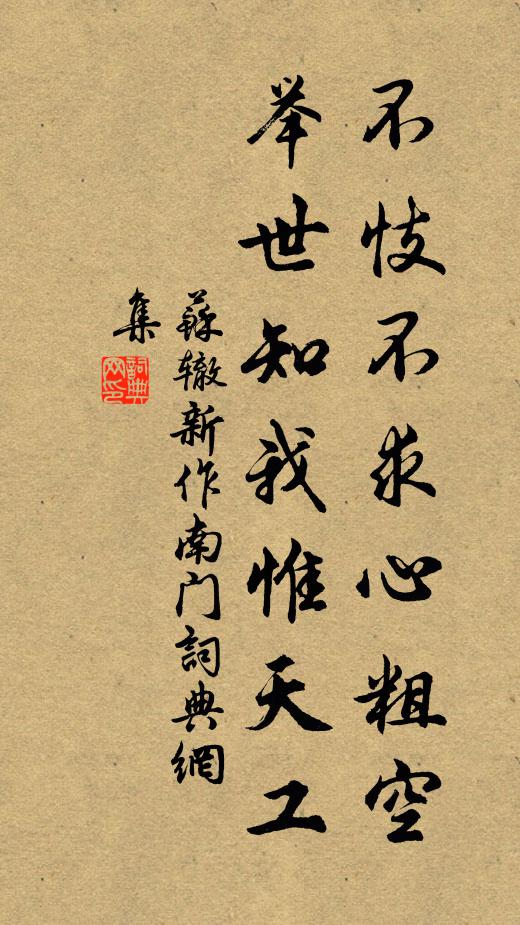 不忮不求心粗空
举世知我惟天工
蘇辙新作南门詞典網
集
詞典网印